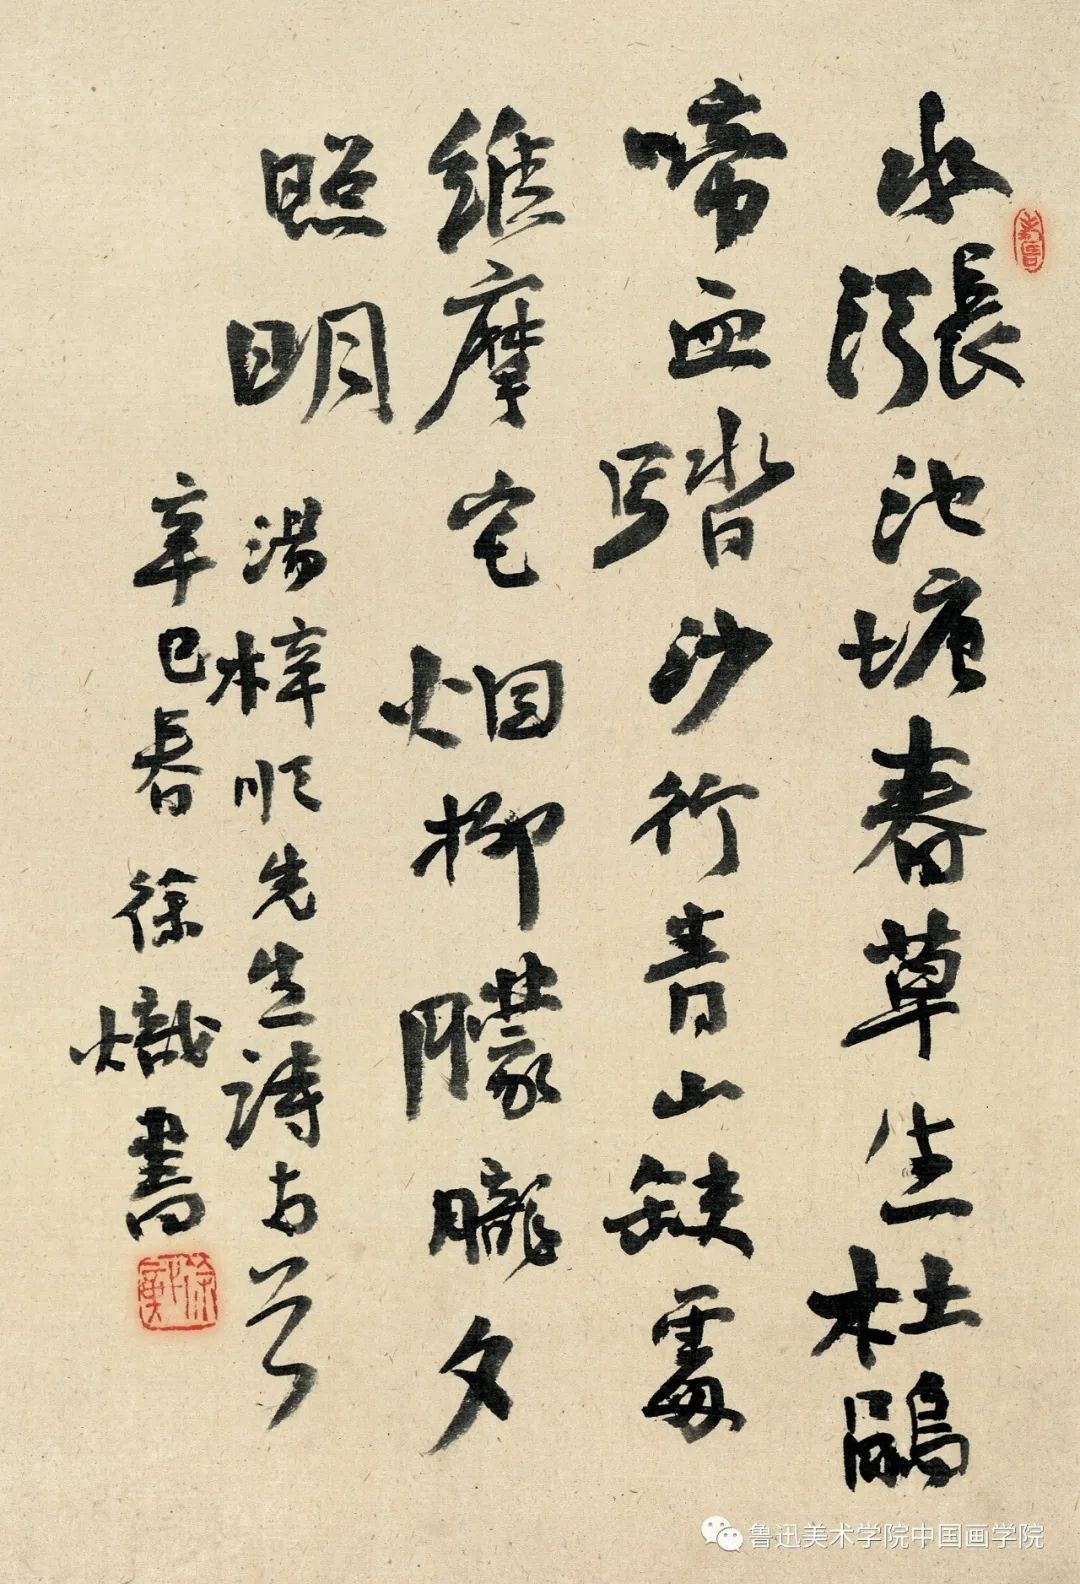 水漲池塘春草生杜鵑
啼血踏沙行青山缺處
維摩宅烟柳朦朧夕
照明
湯梓順先生詩
辛巳春 徐熾書
鲁迅美术学院中国画学院